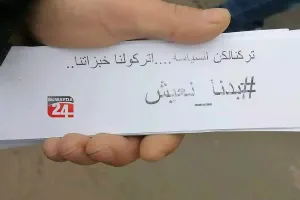 تركنالكن السياسة....اتركولنا خبزاتنا..
#بدنا_نعيش
SUWAYDA
24